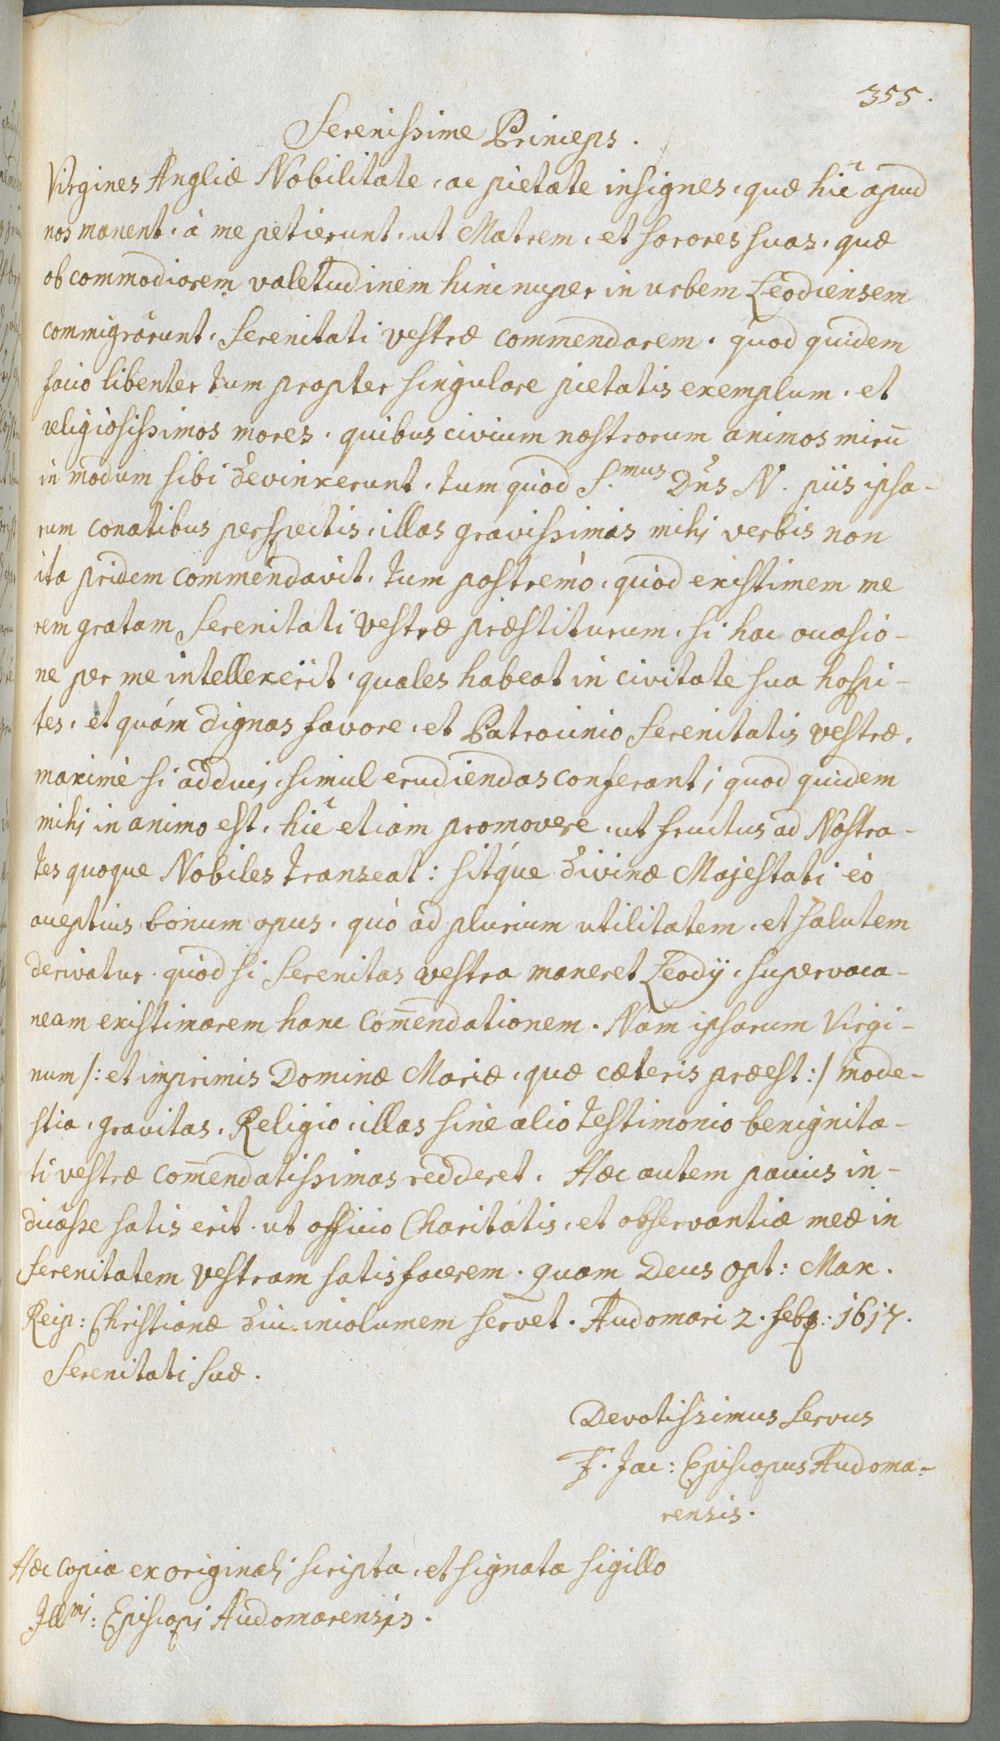 355.
Serenissime Princeps.
Virgines Angliæ Nobilitate, ac pietate insignes, quæ hîc apud
nos manent, à me petierunt, ut Matrem, et sorores suas, quæ
ob commodiorem valetudinem hinc nuper in urbem Leodiensem
commigrârunt, Serenitati vestræ commendarem. quod quidem
facio libenter tum propter singulare pietatis exemplum, et
religiosissimos mores, quibus civium nostrorum animos mirũ
in modum sibi devinxerunt, tum quod S.mus Dñs N. piis ipsa-
rum conatibus perspectis, illas gravissimis mihi verbis non
ita pridem commendavit, tum postremò, quod existimem me
rem gratam Serenitati Vestræ præstiturum, si hac occasio-
ne per me intellexerit, quales habeat in civitate sua hospi-
tes, et quám dignas favore, et Patrocinio Serenitatis vestræ,
maximè si adduci simul erudiendas conferant; quod quidem
mihi in animo est, hîc etiam promovere, ut fructus ad Nostra-
tes quoque Nobiles transeat: sitq́ue divinæ Majestati eò
acceptius bonum opus, quò ad plurium utilitatem, et salutem
derivatur. quod si Serenitas vestra maneret Leodij, supervaca-
neam existimarem hanc com̃endationem. Nam ipsarum Virgi-
num /: et imprimis Dominæ Mariæ, quæ cæteris præest :/ mode-
stia, gravitas, Religio, illas sine alio testimonio benignita-
ti vestræ com̃endatissimas redderet. Hæc autem paucis in-
dicâsse satis erit, ut officio Charitatis, et observantiæ meæ in
Serenitatem Vestram satisfacerem. quam Deus Opt: Max.
Reip: Christianæ diu incolumem servet. Audomari 2. feb: 1617.
Serenitati suæ.
Devotissimus servus
F. Jac: Episcopus Audoma-
rensis.
Hæc copia ex originali scripta, et signata sigillo
Illmi: Episcopi Audomarensis.